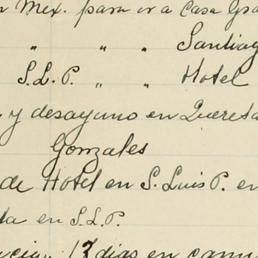 n Mex. para ir a Casa Gra
" " " Santiag
S.L.P. " " Hotel
y desayuno en Quereta
Gonzales
de Hotel en S. Luis P. en
da en S.L.P.
17 dias en cam